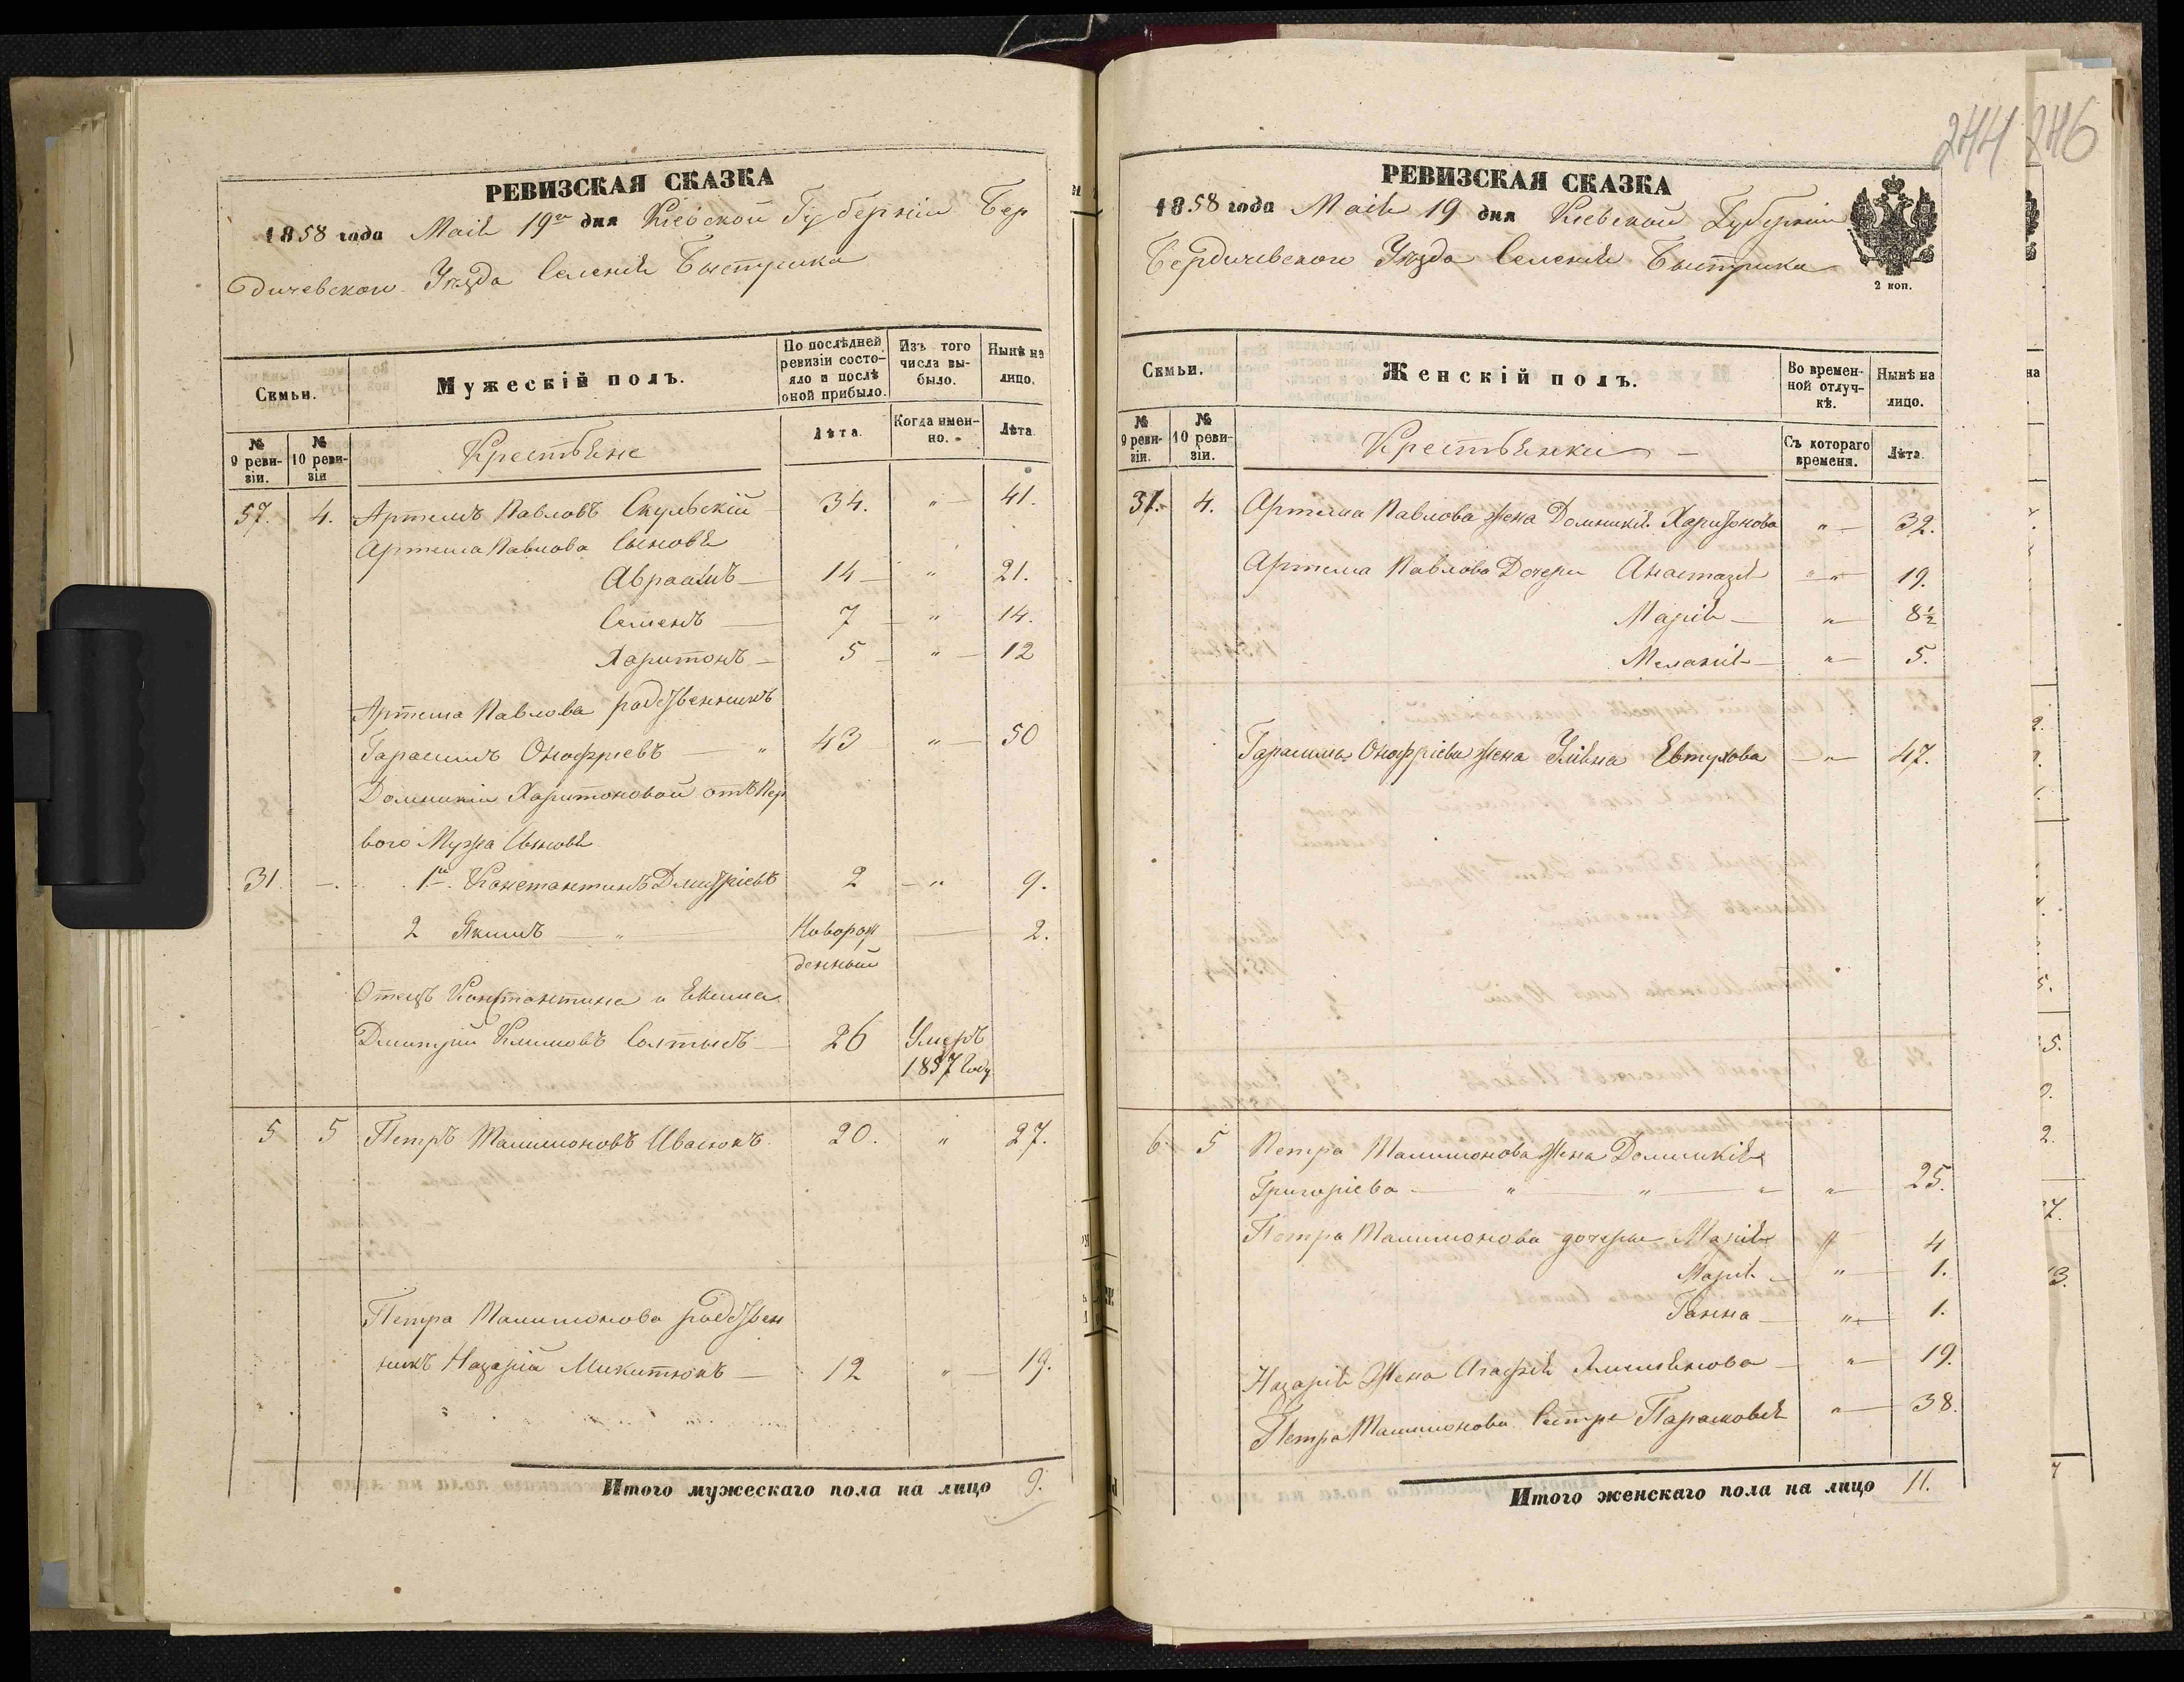 РЕВИЗСКАЯ СКАЗКА
1858 года Маія 19го дня Кіевской Губерніи Бер
дичевскаго Уѣзда Селенія Быстрика
Семьи.
Мужескій полъ.
По послѣдней ревизіи состояло и послѣ оной прибыло.
Изъ того числа выбыло.
Нынѣ на лицо.
№ 9 ревизіи.
№ 10 ревизіи
Крестьяне
Лѣта.
Когда именно.
Лѣта
57. 4. Артемъ Павловъ Скульскій 34. " 41.
Артема Павлова Сыновья
Авраамъ 14 " 21.
Семенъ 7 " 14.
Харитонъ 5 " 12
Артема Павлова родственникъ
Гарасимъ Онофріевъ " 43 " 50
Домникіи Харитоновой отъ Пер
вого Мужа Сыновья
31. 1й. Константинъ Дмитріевъ 2 " 9.
2 Якимъ " Новорож
денный 2.
Отецъ Константина и Екима
Дмитрій Климовъ Солтысъ 26 Умеръ
1857 Году
5 5 Петръ Малимоновъ Ивасюкъ 20. " 27.
Петра Малимонова родствен
никъ Назарій Микитюкъ 12 " 19.
Итого мужескаго пола на лицо 9.
244 246
РЕВИЗСКАЯ СКАЗКА
1858 года Маія 19 дня Кіевской Губерніи
Бердичевского Уѣзда Селенія Быстрика
2 коп.
Семьи.
Женскій полъ.
Во временной отлучкѣ.
Нынѣ на лицо.
№ 9 ревизіи.
№ 10 ревизіи.
Крестьянки
Съ котораго времени.
Лѣта.
31. 4. Артема Павлова жена Домникія Харитонова " 32.
Артема Павлова Дочери Анастазія " 19.
Марія " 8½
Меланія " 5.
Гарасима Онофріева жена Уліяна Евтухова " 47.
6. 5 Петра Малимонова жена Доминикія
Григоріева " " " " 25.
Петра Малимонова дочери Марія " 4
Марія " 1.
Ганна " 1.
Назарія Жена Агафія " 19.
Петра Малимонова Сестра Парасковія " 38.
Итого женскаго пола на лицо 11.